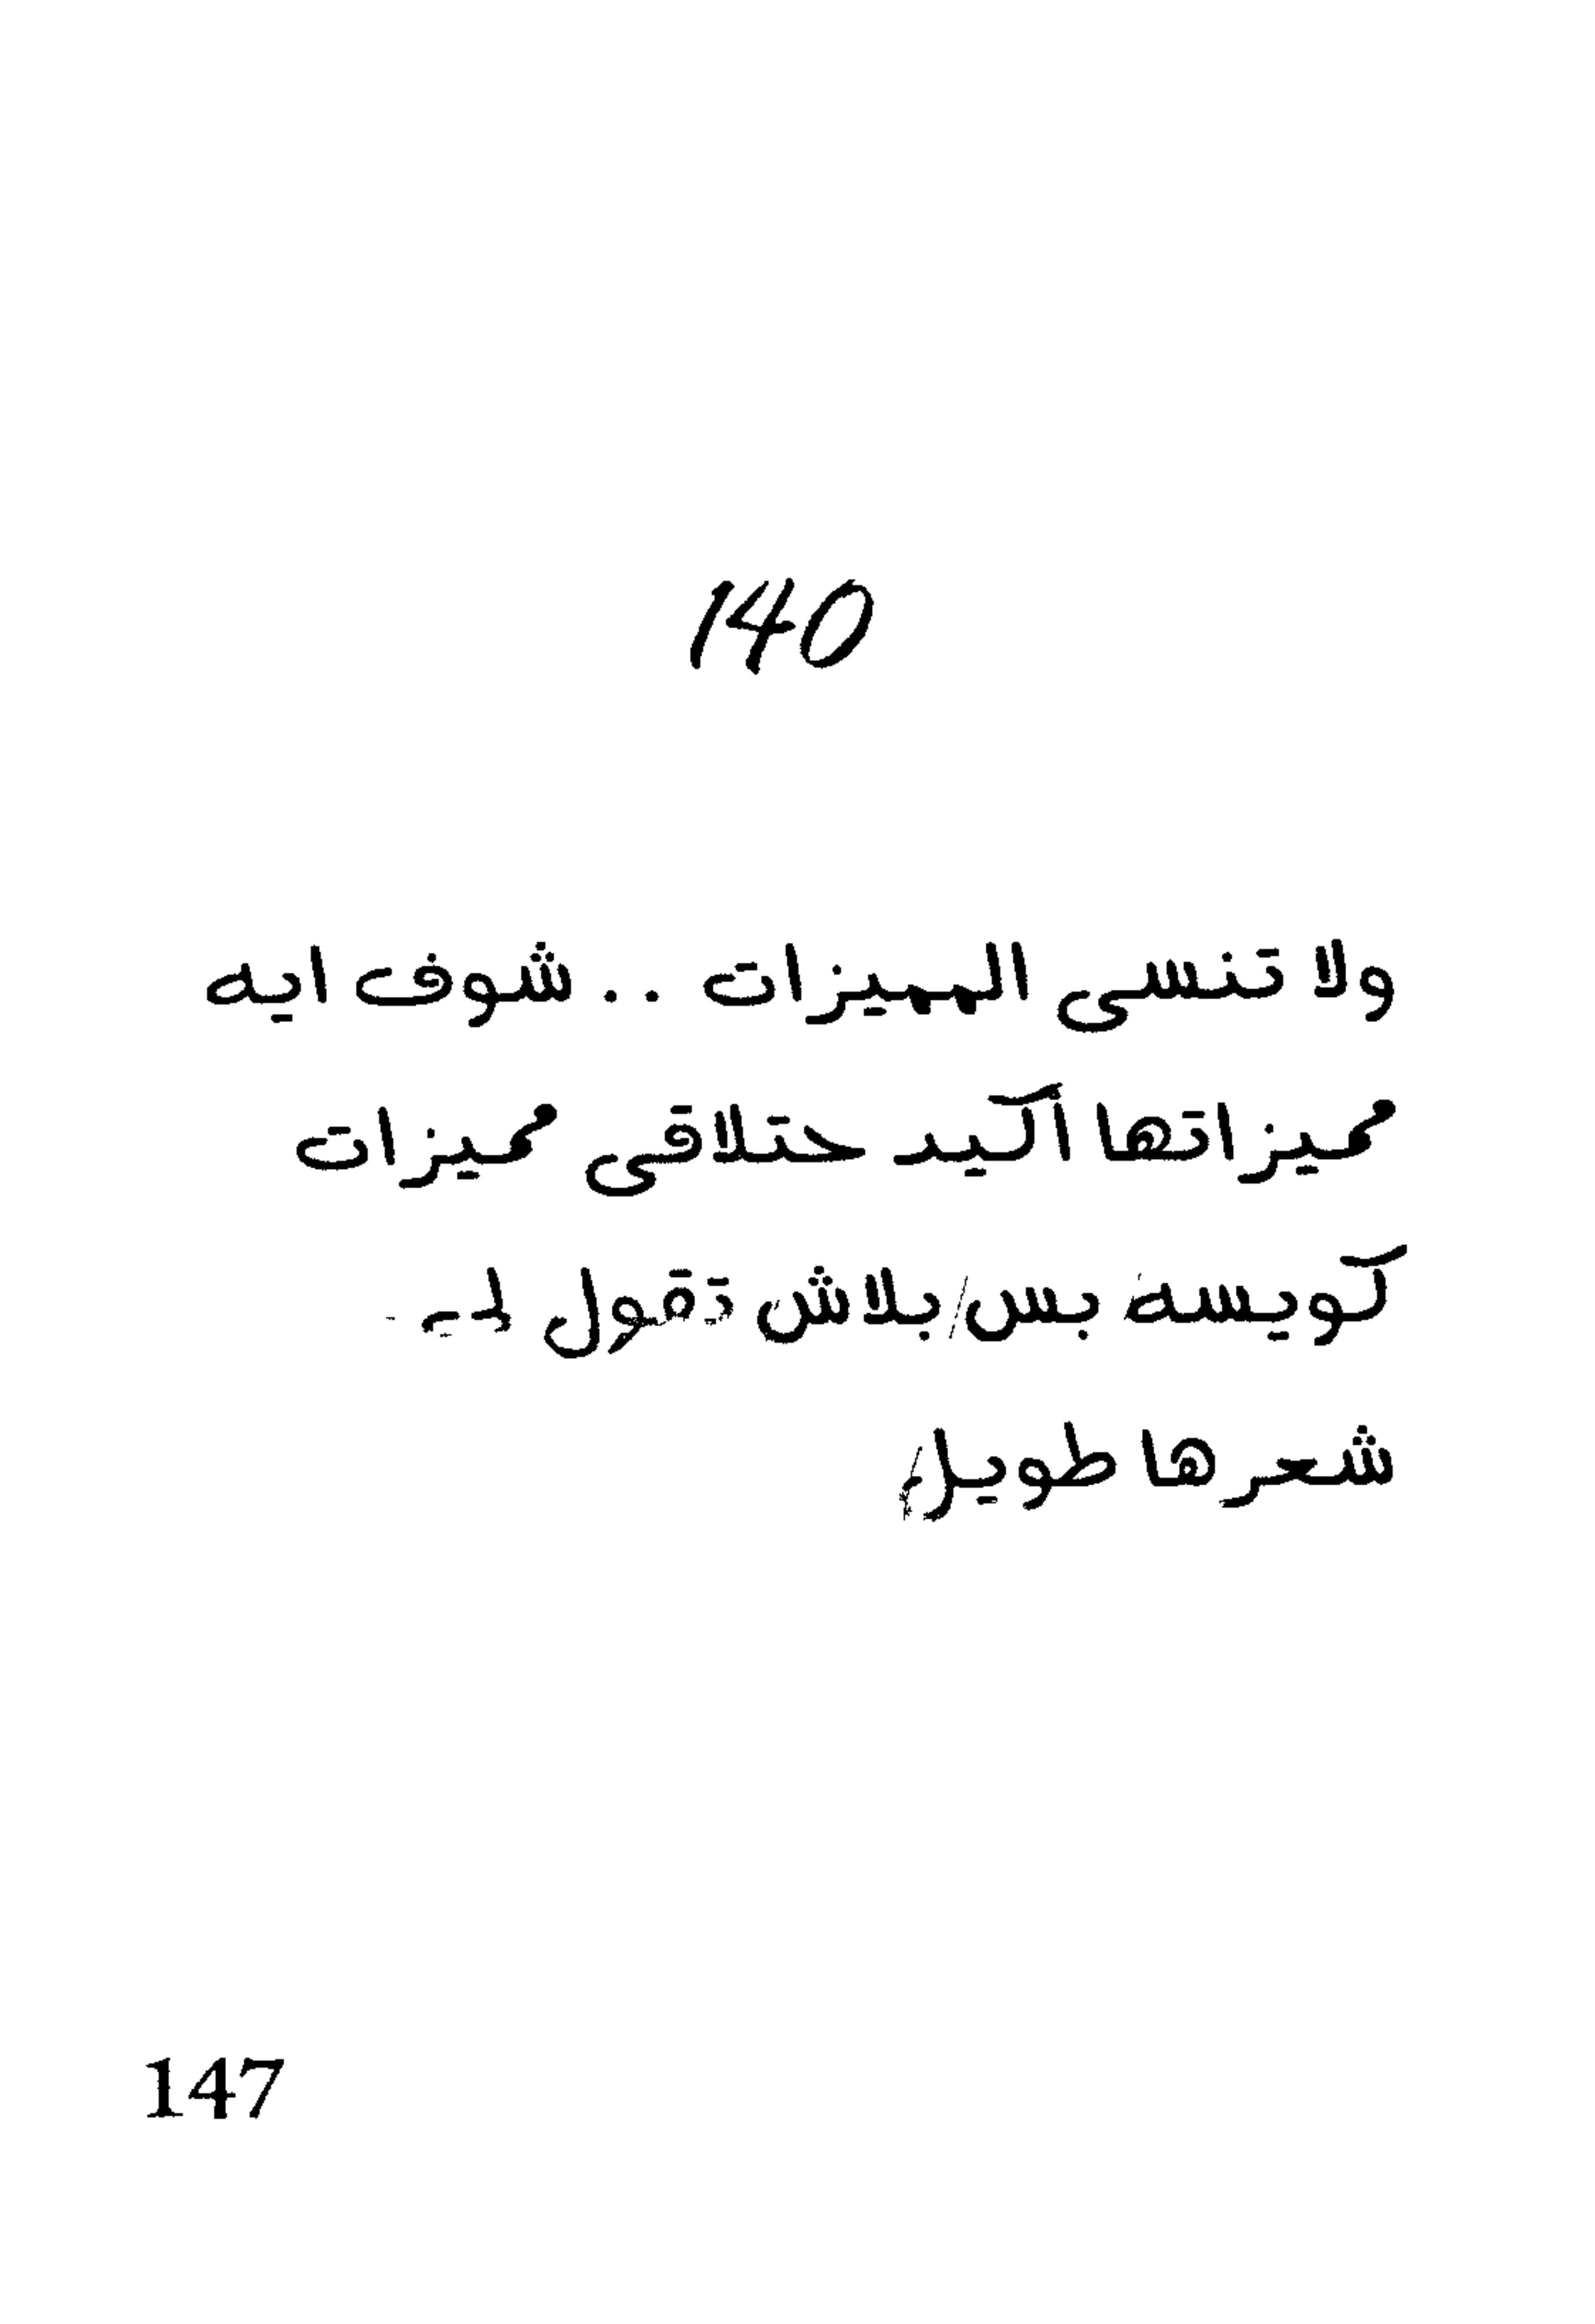 140
ولا تنسى المميزات .. شوف ايه
مميزاتها أكيد حتلاقى مميزات
كويسه بس بلاش تقول لى
شعرها طويل
147